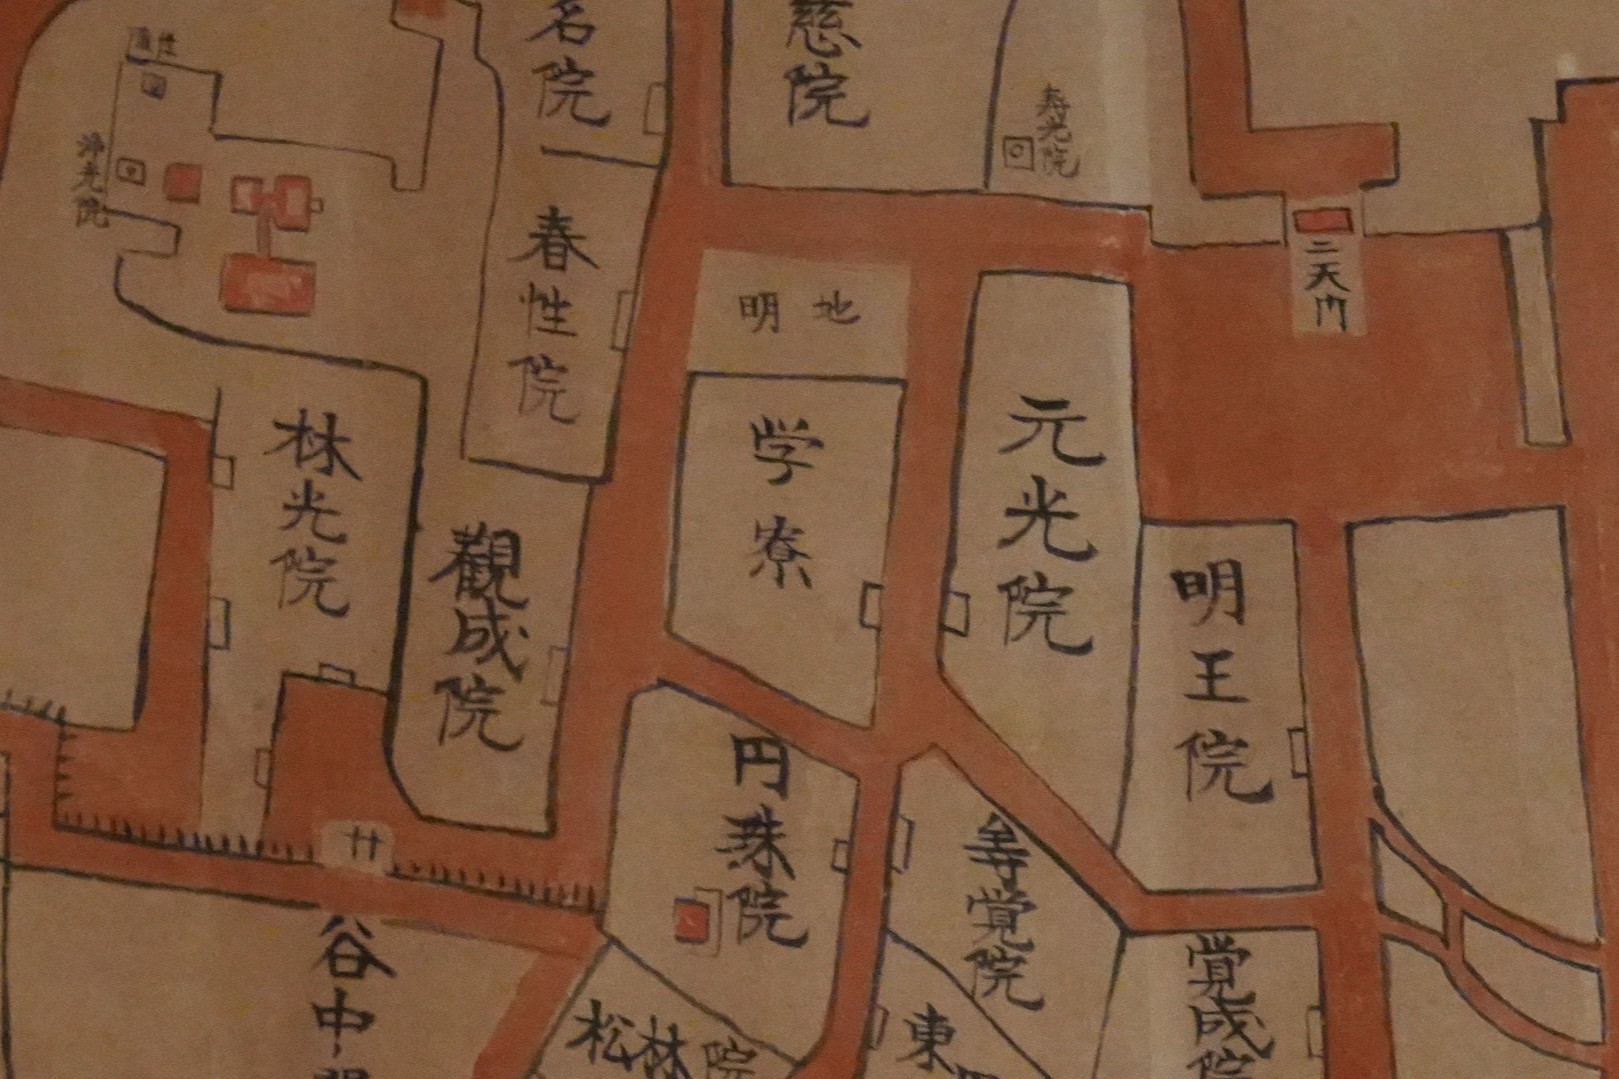 名院
慈院
寿光院
浄光院
二天門
春性院
明地
林光院
学寮
元光院
觀成院
明王院
円珠院
寿覚院
谷中
覚成院
松林院
東